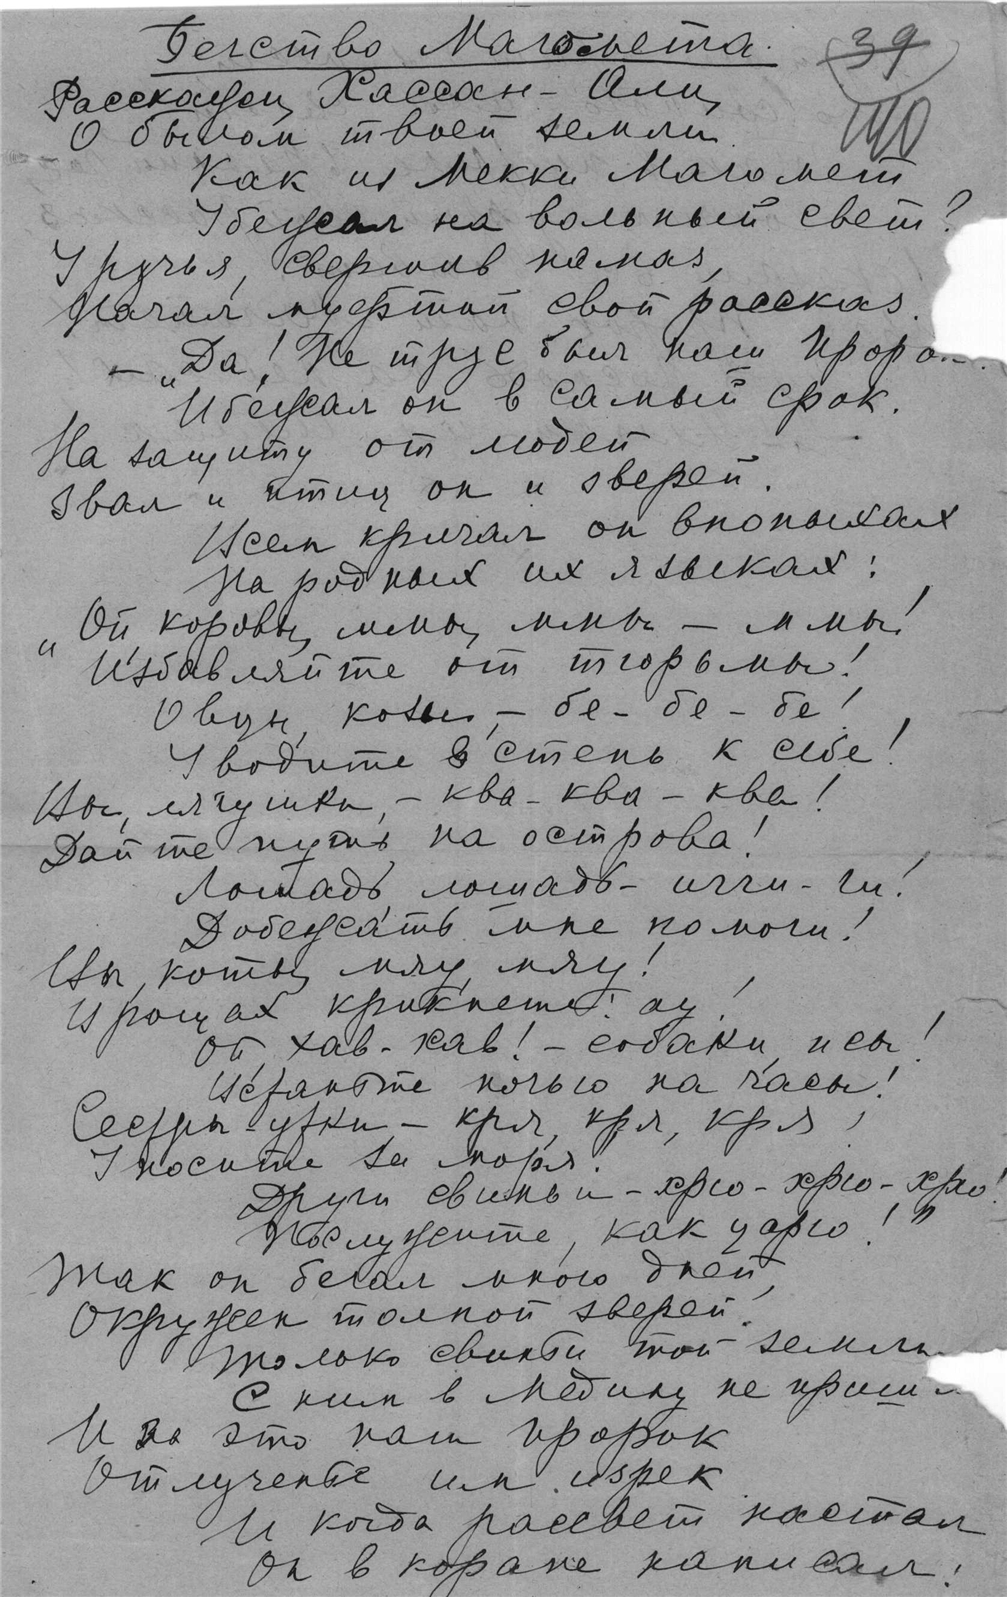 Бегство Магомета.
39
40
Расскажи, Хассан-Али,
О былом твоей земли
Как из Мекки Магомет
Убежал на вольный свет?
У ручья, свершив намаз,
Начал муфтий свой рассказ.
— „Да! Не трус был наш Проро
И бежал он в самый срок.
На защиту от людей
Звал и птиц он и зверей.
Всем кричал он впопыхах
На родных их языках:
„Ой коровы, ммы, ммы — ммы!
Избавляйте от тюрьмы!
Овцы, козы, — бе - бе - бе!
Уводите в степь к себе!
Вы, лягушки, — ква - ква - ква!
Дайте путь на острова!
Лошадь, лошадь - игги - ги!
Добежать мне помоги!
Вы, коты, мяу, мяу!
В рощах крикнете: ау!
Ой, хав - хав! — собаки, псы!
Встаньте ночью на часы!
Сестры - утки — кря, кря, кря!
Уносите за моря.
Други свиньи - хрю - хрю - хрю!
Послужите, как царю!"
Так он бегал много дней,
Окружен толпой зверей.
Только свиньи той земли
С ним в Медину не пришли
И за это наш пророк
Отлученье им изрек
И когда рассвет настал
Он в коране написал: